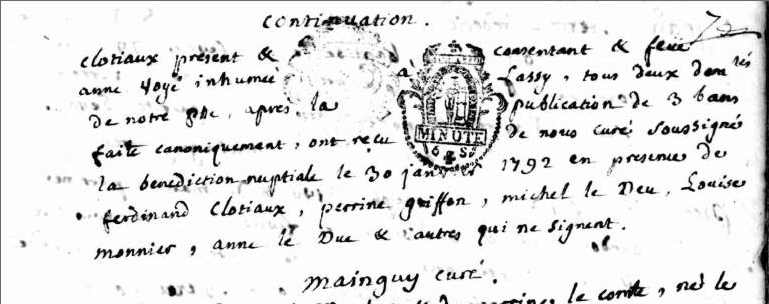 continuation.
72
clotiaux présent & consentant & feue
anne Voyé inhumée à Lassy, tous deux dom^iés
de notre psse, après la publication de 3 bans
faite canoniquement, ont reçu de nous curé soussigné
la benediction nuptiale le 30 janvier 1792 en presence de
ferdinand Clotiaux, perrine griffon, michel le Deu, Louise
monnier, anne le Duc & autres qui ne signent.
MINUTE
6 S
mainguy curé.
le comte, né le